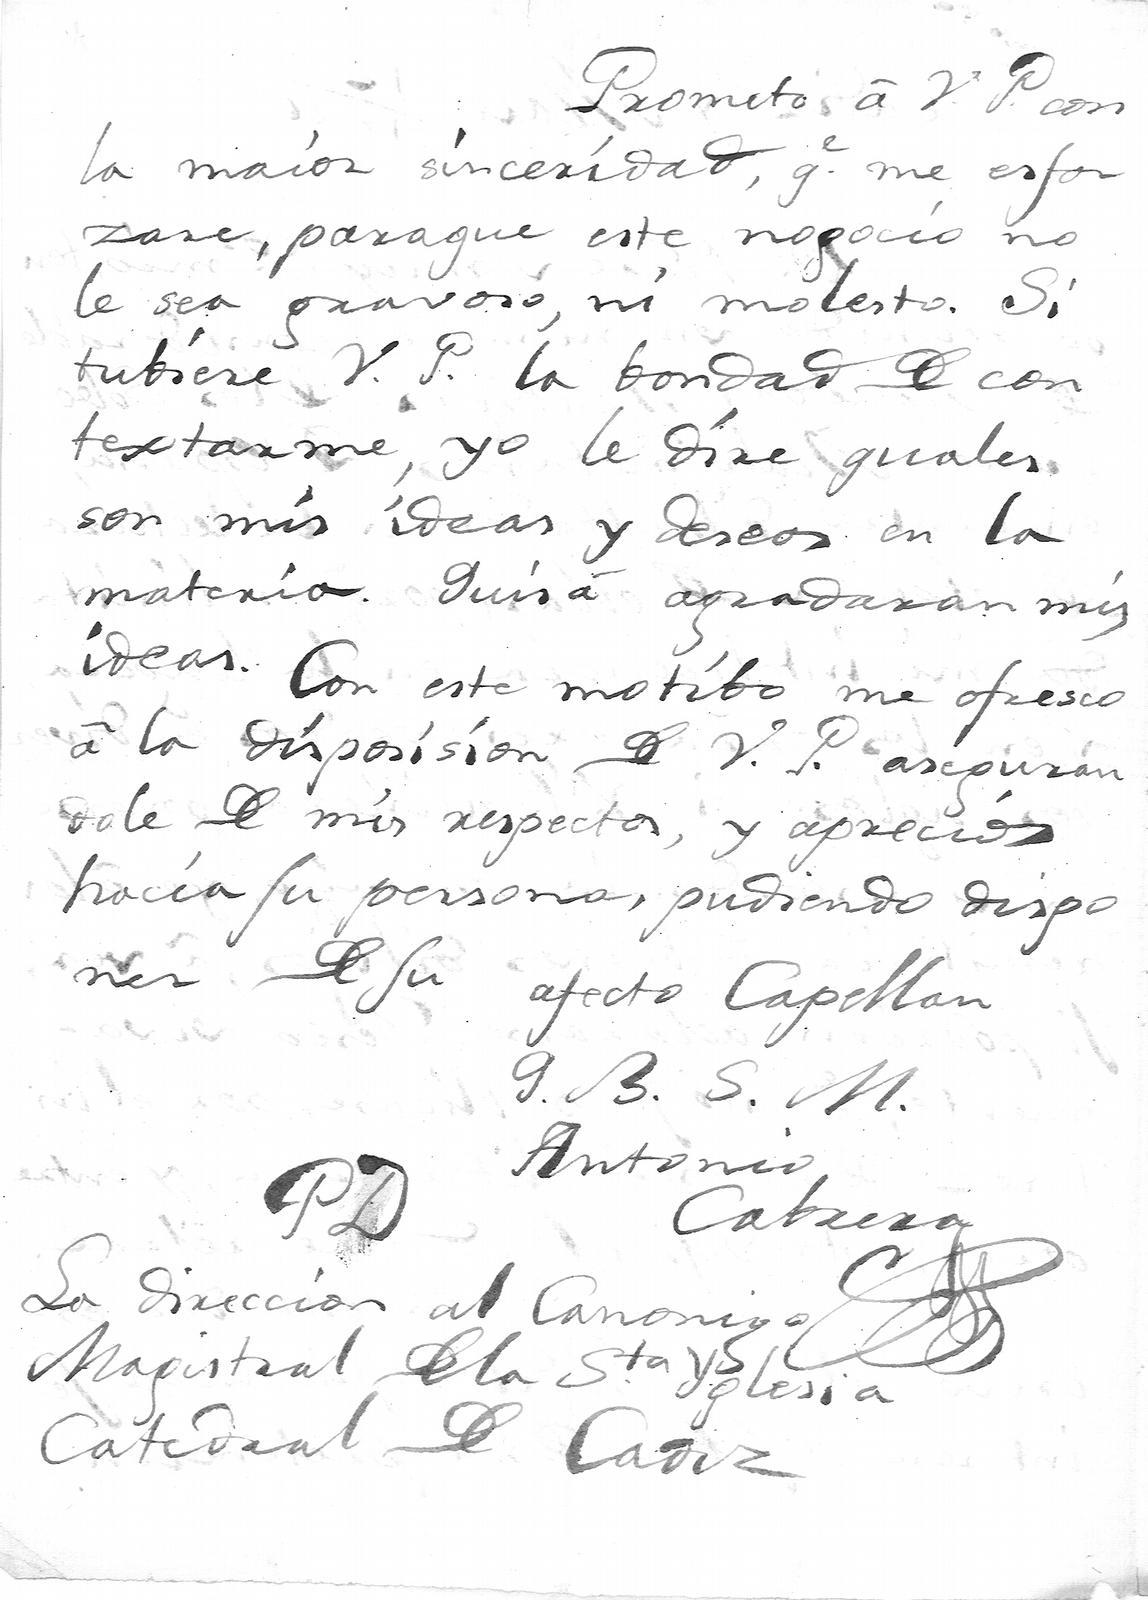 Prometo â V. P. con
la maior sinceridad, q.e me esfor
zare, paraque este nogocio no
le sea gravoso, ni molesto. Si
tubiere V. P. la bondad De con
textarme, yo le dire quales
son mis ideas y deseos en la
materia. Quisâ agradaran mis
ideas. Con este motibo me ofresco
â la disposision De V. P. asegurán
dole De mis respectos, y aprecios
hacia su persona, pudiendo dispo
ner De su afecto Capellan
Q. B. S. M.
Antonio
Cabrera
PD
La direccion al Canonigo
Magistral De la S.ta Yglesia
Catedral De Cadiz